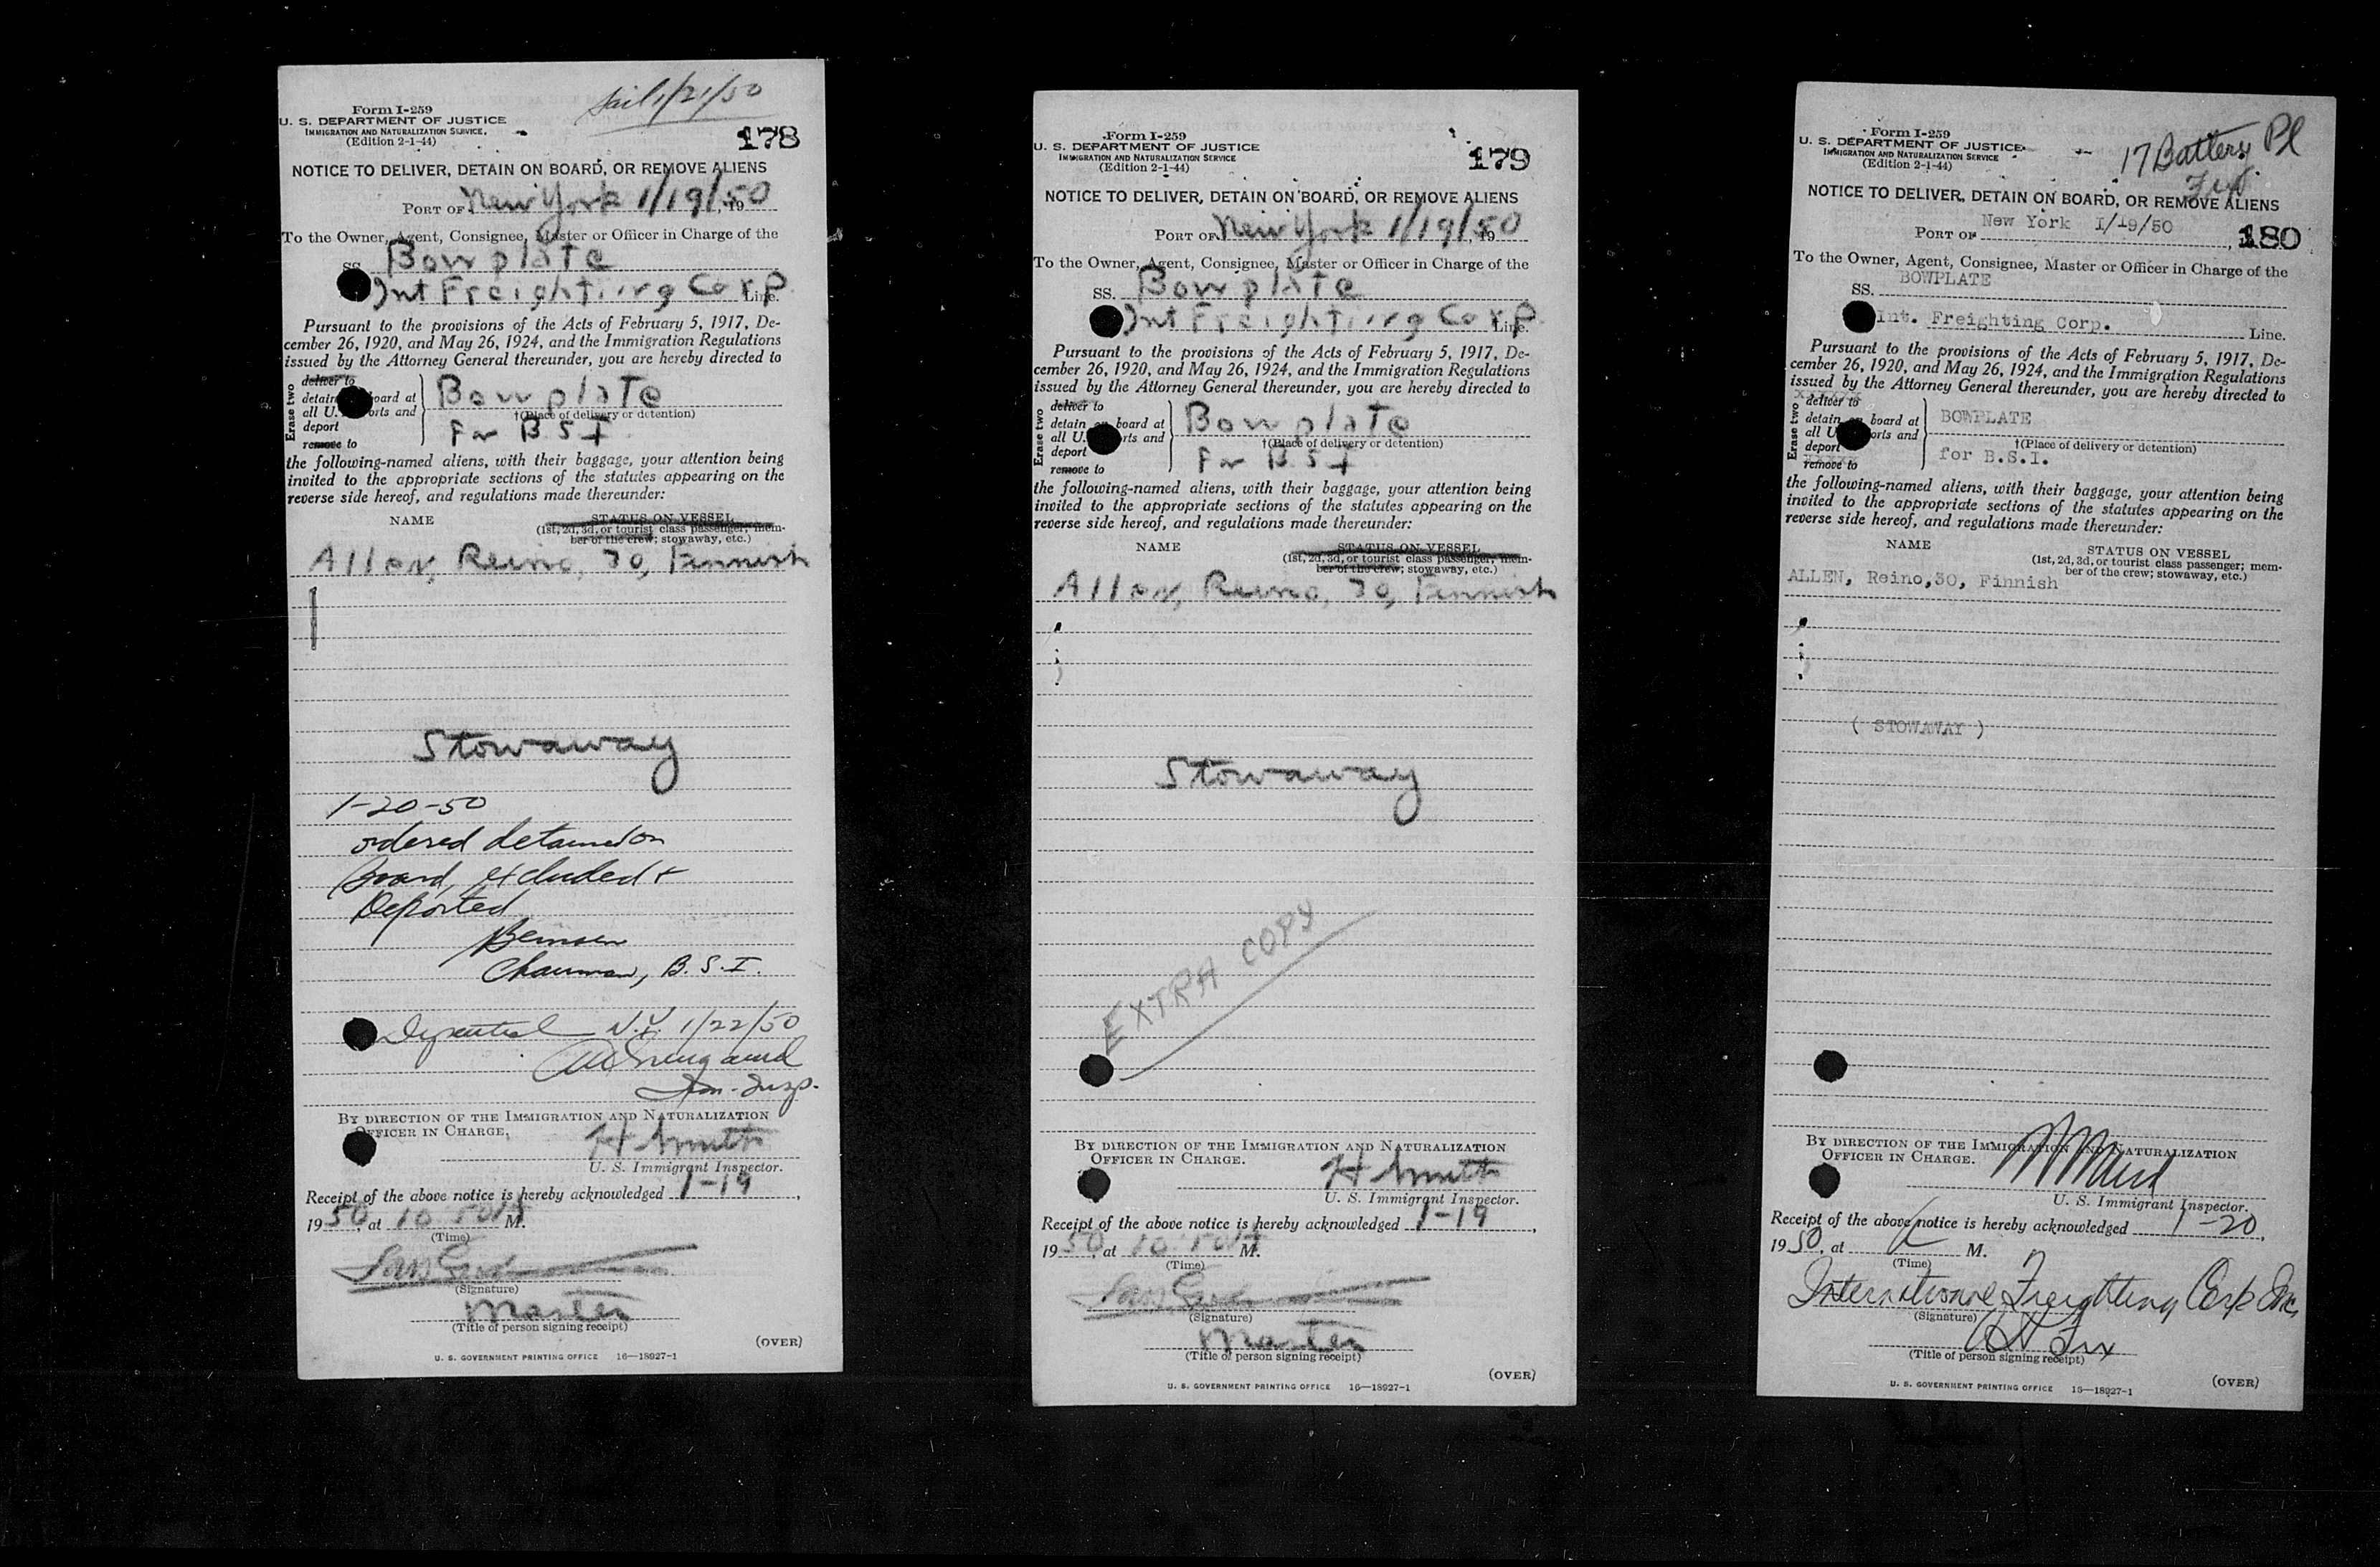 Sail 1/21/50
Form I-259
U. S. DEPARTMENT OF JUSTICE
IMMIGRATION AND NATURALIZATION SERVICE
(Edition 2-1-44)
178
NOTICE TO DELIVER, DETAIN ON BOARD, OR REMOVE ALIENS
PORT OF New York 1/19/50, 19
To the Owner, Agent, Consignee, Master or Officer in Charge of the
SS. Bowplate
Int Freighting Corp Line.
Pursuant to the provisions of the Acts of February 5, 1917, De-
cember 26, 1920, and May 26, 1924, and the Immigration Regulations
issued by the Attorney General thereunder, you are hereby directed to
Erase two
deliver to
detain board at
all U. orts and
deport
remove to
Bowplate
†(Place of delivery or detention)
For B S I
the following-named aliens, with their baggage, your attention being
invited to the appropriate sections of the statutes appearing on the
reverse side hereof, and regulations made thereunder:
NAME STATUS ON VESSEL
(1st, 2d, 3d, or tourist class passenger; mem-
ber of the crew; stowaway, etc.)
Allen, Reino, 30, Finnish
Stowaway
1-20-50
ordered detained on
Board, excluded +
Deported
Chairman, B. S. I.
Deported N.Y. 1/22/50
Imm. Insp.
BY DIRECTION OF THE IMMIGRATION AND NATURALIZATION
OFFICER IN CHARGE.
H Smith
U. S. Immigrant Inspector.
Receipt of the above notice is hereby acknowledged 1-19,
1950, at 10 50 A M.
(Time)
(Signature)
Master
(Title of person signing receipt)
(OVER)
U. S. GOVERNMENT PRINTING OFFICE 16—18927-1
Form I-259
U. S. DEPARTMENT OF JUSTICE
IMMIGRATION AND NATURALIZATION SERVICE
(Edition 2-1-44)
179
NOTICE TO DELIVER, DETAIN ON BOARD, OR REMOVE ALIENS
PORT OF New York 1/19/50, 19
To the Owner, Agent, Consignee, Master or Officer in Charge of the
SS. Bowplate
Int Freighting Corp Line.
Pursuant to the provisions of the Acts of February 5, 1917, De-
cember 26, 1920, and May 26, 1924, and the Immigration Regulations
issued by the Attorney General thereunder, you are hereby directed to
Erase two
deliver to
detain on board at
all U. orts and
deport
remove to
Bowplate
†(Place of delivery or detention)
For B S I
the following-named aliens, with their baggage, your attention being
invited to the appropriate sections of the statutes appearing on the
reverse side hereof, and regulations made thereunder:
NAME STATUS ON VESSEL
(1st, 2d, 3d, or tourist class passenger; mem-
ber of the crew; stowaway, etc.)
Allen, Reino, 30, Finnish
Stowaway
EXTRA COPY
BY DIRECTION OF THE IMMIGRATION AND NATURALIZATION
OFFICER IN CHARGE.
H Smith
U. S. Immigrant Inspector.
Receipt of the above notice is hereby acknowledged 1-19,
1950, at 10 50 A M.
(Time)
(Signature)
Master
(Title of person signing receipt)
(OVER)
U. S. GOVERNMENT PRINTING OFFICE 16—18927-1
Form I-259
U. S. DEPARTMENT OF JUSTICE
IMMIGRATION AND NATURALIZATION SERVICE
(Edition 2-1-44)
17 Battery Pl
NOTICE TO DELIVER, DETAIN ON BOARD, OR REMOVE ALIENS
PORT OF New York 1/19/50,
180
To the Owner, Agent, Consignee, Master or Officer in Charge of the
SS. BOWPLATE
Int. Freighting Corp. Line.
Pursuant to the provisions of the Acts of February 5, 1917, De-
cember 26, 1920, and May 26, 1924, and the Immigration Regulations
issued by the Attorney General thereunder, you are hereby directed to
Erase two
deliver to
detain on board at
all U orts and
deport
remove to
BOWPLATE
†(Place of delivery or detention)
for B.S.I.
the following-named aliens, with their baggage, your attention being
invited to the appropriate sections of the statutes appearing on the
reverse side hereof, and regulations made thereunder:
NAME STATUS ON VESSEL
(1st, 2d, 3d, or tourist class passenger; mem-
ber of the crew; stowaway, etc.)
ALLEN, Reino,30, Finnish
( STOWAWAY )
BY DIRECTION OF THE IMMIGRATION AND NATURALIZATION
OFFICER IN CHARGE.
U. S. Immigrant Inspector.
Receipt of the above notice is hereby acknowledged 1-20,
1950, at M.
(Time)
International Freighting Corp Inc.
(Signature)
(Title of person signing receipt)
(OVER)
U. S. GOVERNMENT PRINTING OFFICE 16—18927-1